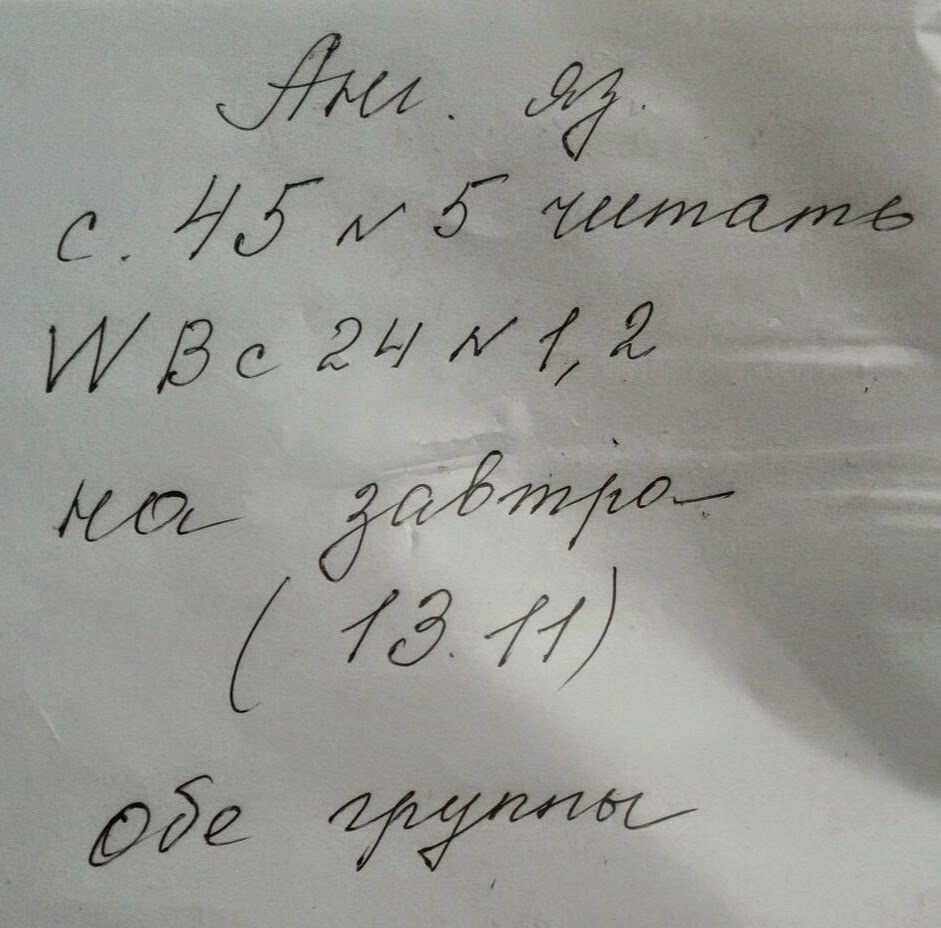 Анг. яз.
с. 45 № 5 читать
WB с 24 № 1, 2
на завтра
(13.11)
обе группы